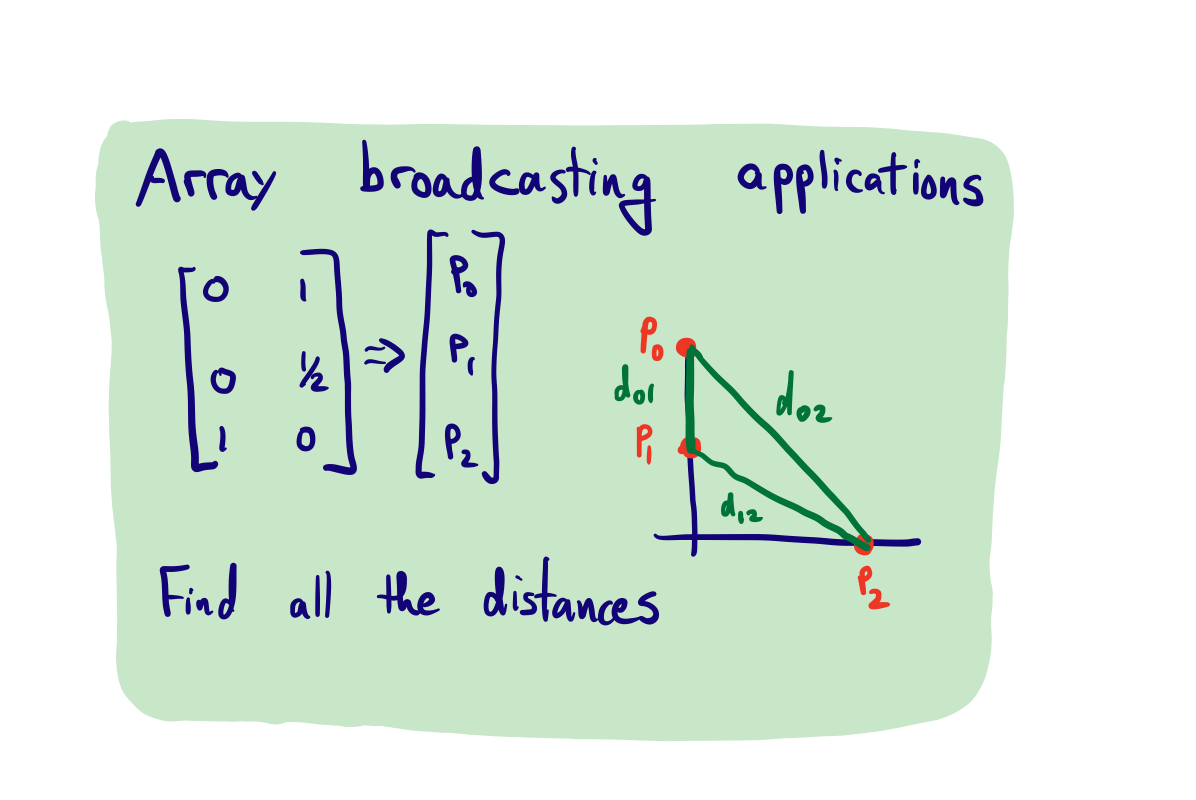 Array broadcasting applications
0 1
0 1/2
1 0
⇒
P0
P1
P2
P0
d01
d02
P1
d12
P2
Find all the distances